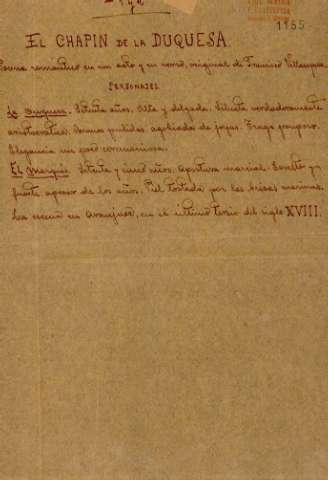 1155
EL CHAPIN DE LA DUQUESA.
Poema romantico en un acto y en verso, original de Francisco Villaespesa.
PERSONAJES
La Duquesa. Setenta años. Alta y delgada. Silueta verdaderamente
aristocratica. Manos palidas agobiadas de joyas. Traje pomposo.
Elegancia un poco ceremoniosa.
El Marqués. Setenta y cinco años. Apostura marcial. Esbelto y
fuerte apesar de los años. Piel tostada por las brisas marinas.
La escena en Aranjuez, en el ultimo tercio del siglo XVIII.